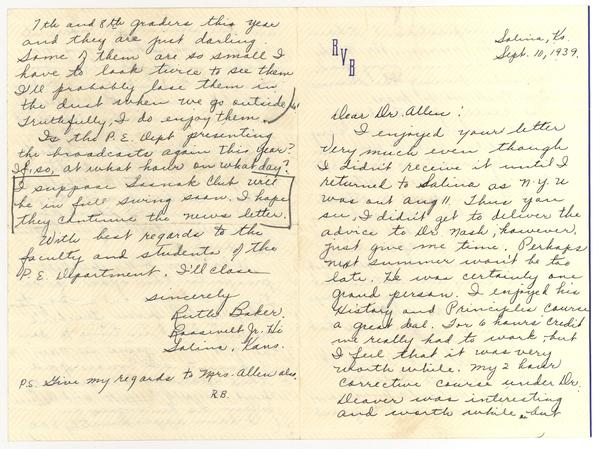 RVB
Salina, Ks.
Sept. 10, 1939.
Dear Dr. Allen:
I enjoyed your letter
very much even though
I didn't receive it until I
returned to Salina as N.Y.U
was out Aug 11. Thus you
see, I didn't get to deliver the
advice to Dr. Nash, however,
just give me time. Perhaps
next summer won't be too
late. He was certainly one
grand person. I enjoyed his
History and Principles Course
a great deal. For 6 hours credit
we really had to work, but
I feel that it was very
worth while. My 2 hour
corrective course under Dr.
Deaver was interesting
and worth while, but
7th and 8th graders this year
and they are just darling
Some of them are so small I
have to look twice to see them
I'll probably lose them in
the dust when we go outside,
Truthfully, I do enjoy them.
Is the P.E. Dept presenting
the broadcasts again this year?
If, so, at what hour on what day?
I suppose Club will
be in full swing soon. I hope
they continue the news letter.
With best regards to the
faculty and students of the
P.E. Department, I'll close
Sincerely
Ruth Baker.
Roosevelt Jr. Hi
Salina, Kans.
P.S. Give my regards to Mrs. Allen also.
R.B.